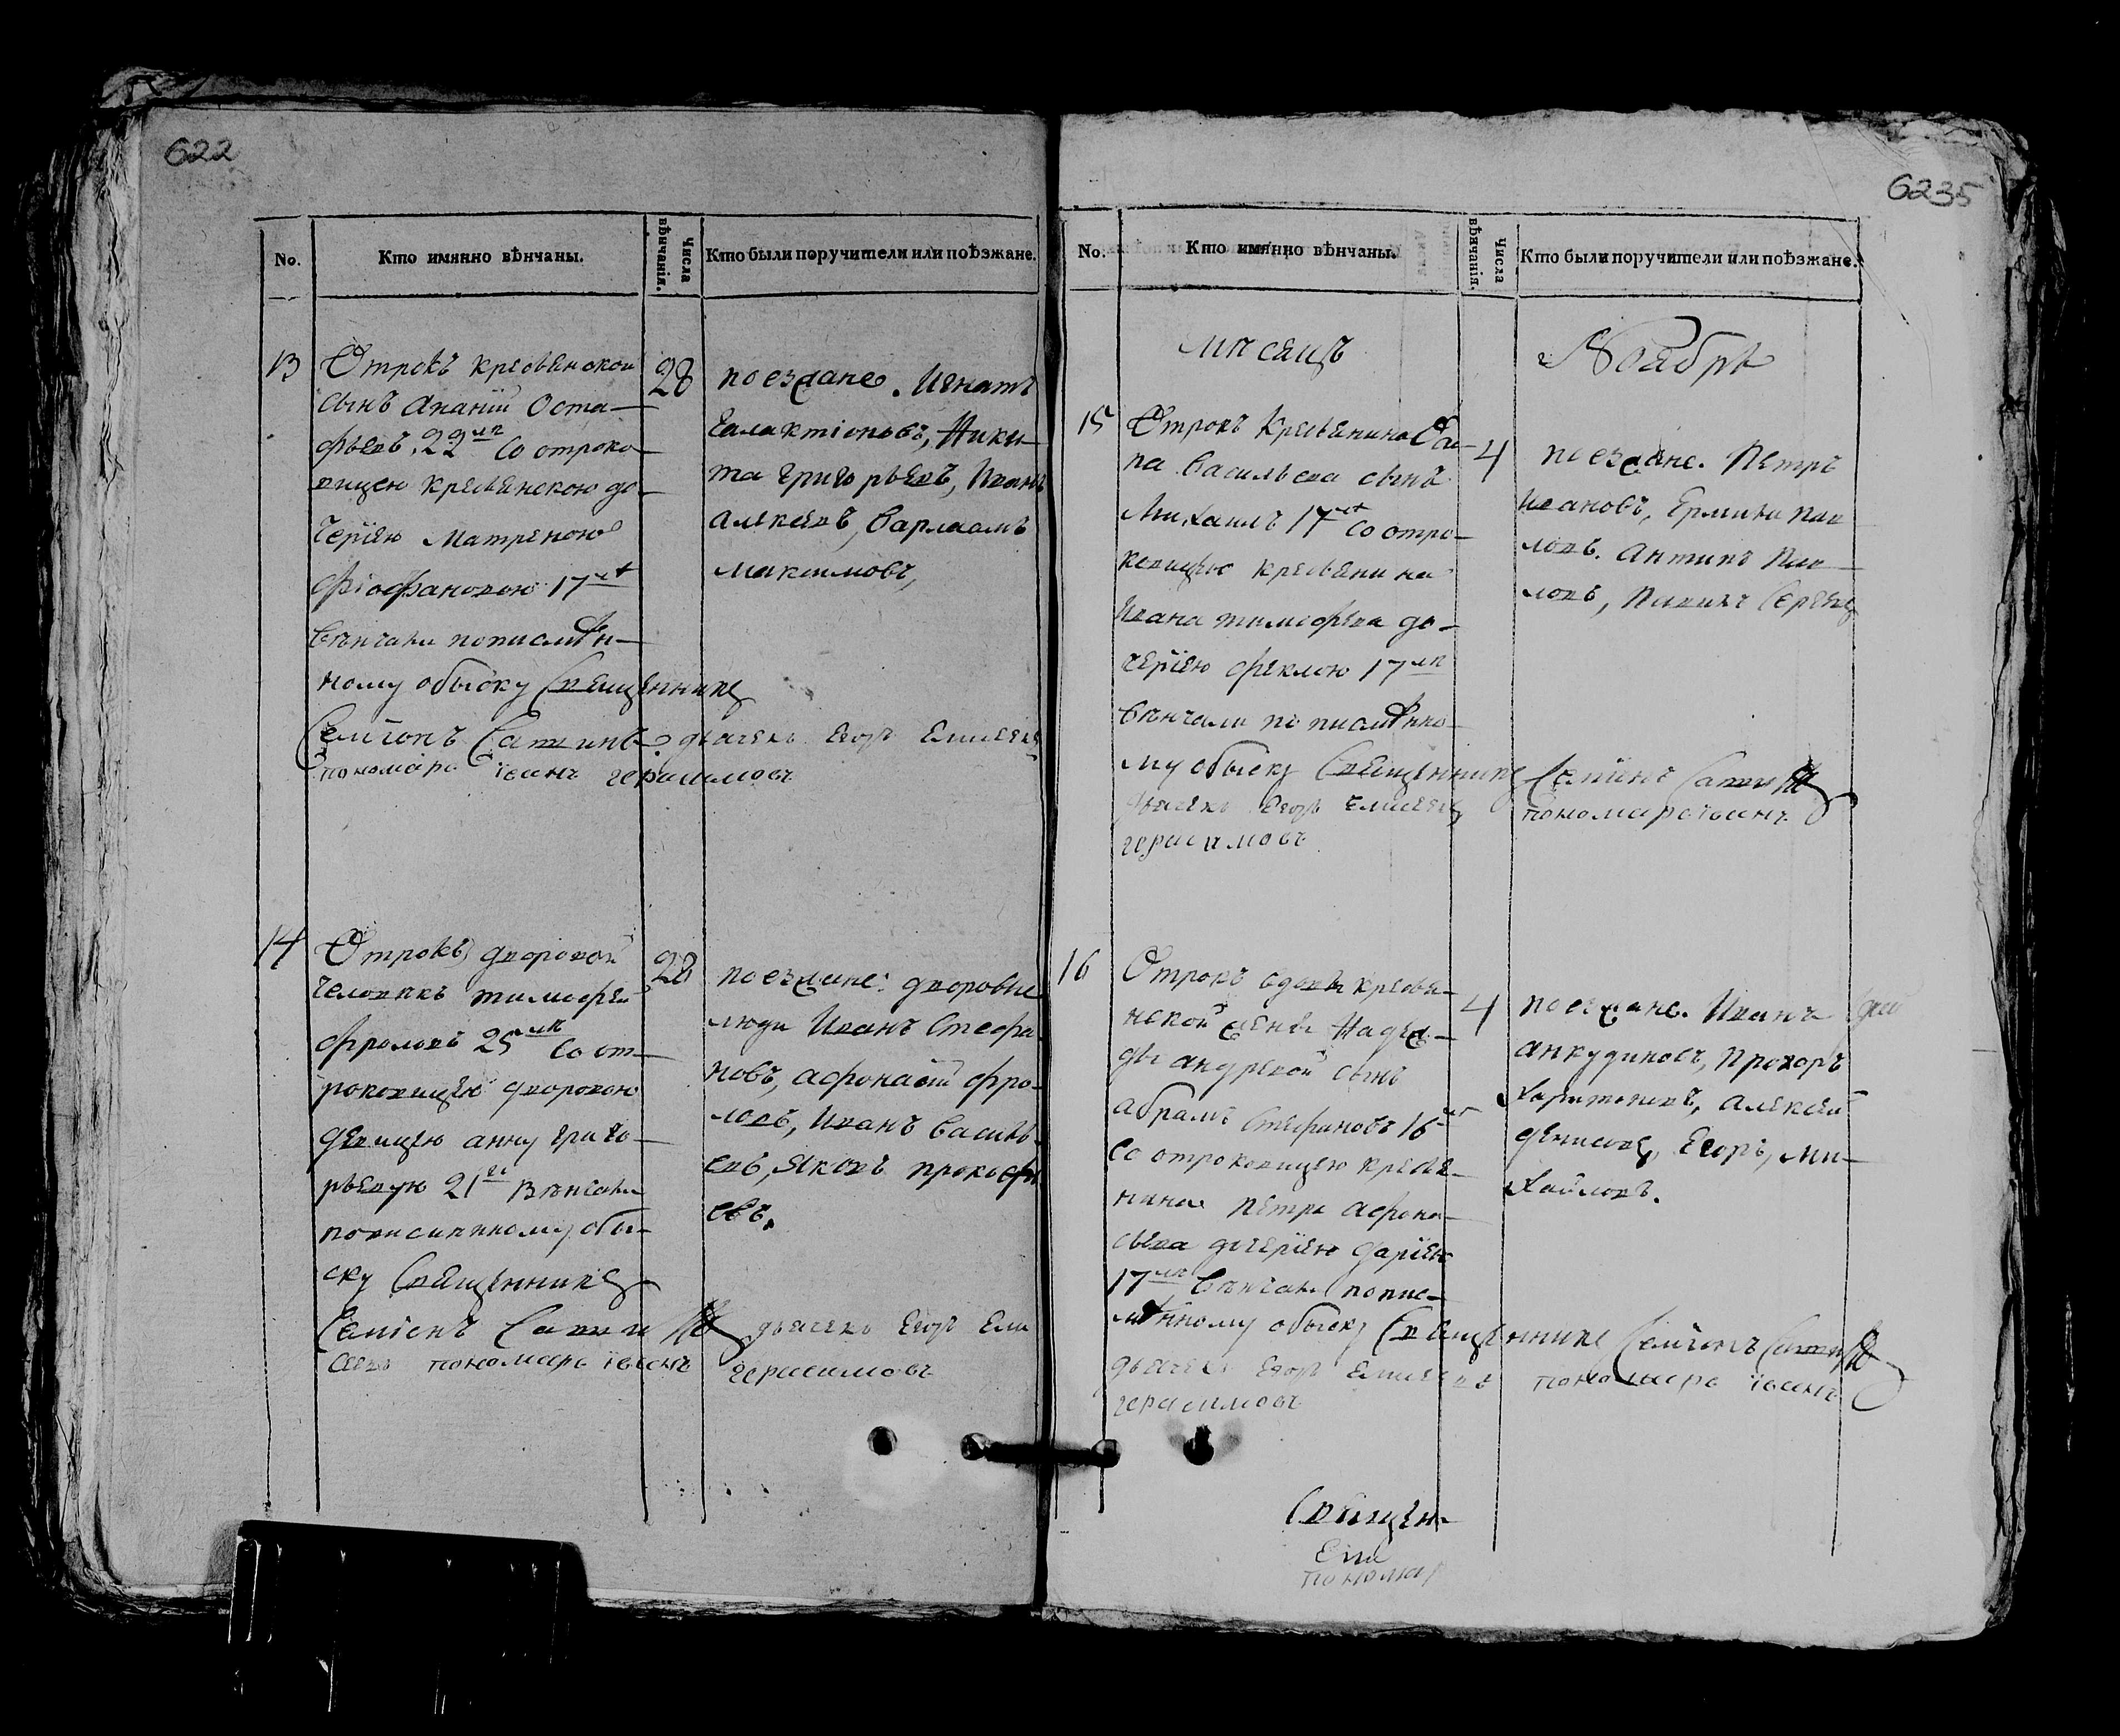 622
No.
Кто имянно вѣнчаны.
Числа вѣнчанія.
Кто были поручители или поѣзжане.
13
Отрокъ кресьянской
сынъ Ананій Оста-
фьевъ. 22 лѣ Со отроко-
вицею кресьянскою до-
черїею Матреною
Фіофановою 17 лѣ
Вѣнчаны пописмѣн-
ному обыску Священникъ
Семіонъ дьячекъ Егоръ Елисеевъ
пономарь їванъ герасимовъ
28
поезжане. Игнатъ
Галактіоновъ, Ники-
та Григорьевъ, Иванъ
Алексѣевъ, Варлаамъ
Максимовъ,
14
Отрокъ дворовой
человѣкъ тимофей
Фроловъ 25 лѣ Со от-
роковицею дворовою
девицею анну григо-
рьевую 21 лѣ Вѣнчаны
пописмѣнному обы-
ску Священникъ
Семіонъ дьячекъ Егоръ Ели
сеевъ пономарь їванъ герасимовъ
28
поезжане: дворовые
люди Иванъ Стефа
новъ, афонасій фро-
ловъ, Иванъ Василь-
евъ, Яковъ прокофи
евъ.
6235
No.
Кто имянно вѣнчаны.
Числа вѣнчанія.
Кто были поручители или поѣзжане.
мѣсяцъ
Ноябрь
15
Отрокъ Кресьянина
Васильева сынъ
Михаилъ 17 лѣ Со отро-
ковицею кресьянина
Ивана тимофеева до-
черїею феклою 17 лѣ
Вѣнчаны по писмѣнно-
му обыску Священникъ Семїонъ
дьячекъ Егоръ Елисеевъ пономарь їванъ
герасимовъ
4
поезжане. Петръ
Ивановъ, Ермила Пав
ловъ. Антипъ Пав-
ловъ,
16
Отрокъ вдовы кресья-
нской жены Надеж-
ды андревой сынъ
абрамъ Стефановъ 16 лѣ
Со отроковицею кресья-
нина петра афона-
сьева дочерїею дарїею
17 лѣ Вѣнчаны попис-
мѣнному обыску Священникъ Семіонъ
дьячекъ Егоръ Елисеевъ пономарь їванъ
герасимовъ
4
поезжане. Иванъ
анкудиновъ, Прохоръ
Харитоновъ, Алексей
денисовъ, Егоръ, Ми-
хайловъ.
Священ-
Ели
пономар